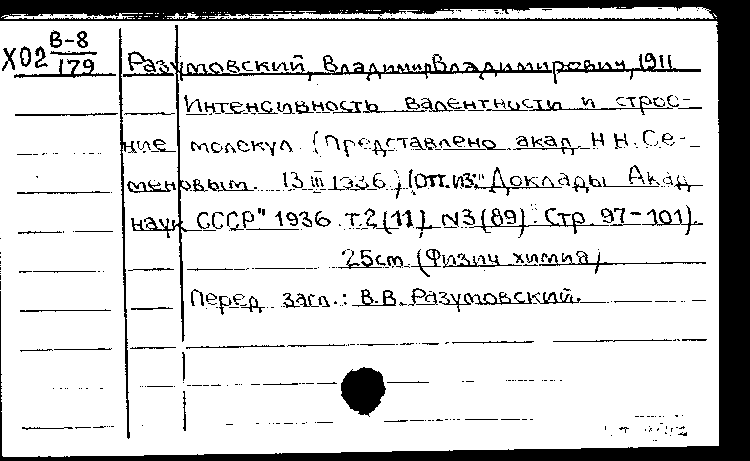 Х02 В-8/179
Разумовский, Владимир Владимирович, 1911
Интенсивность валентности и строе-
ние молекул. (Представлено акад. Н.Н. Се-
меновым. 13 III 1936.) (Отт. из: "Доклады Акад.
наук СССР" 1936. т.2 (11), N3 (89). Стр. 97-101).
25cm. (Физич химия)
Перед загл.: В.В. Разумовский.